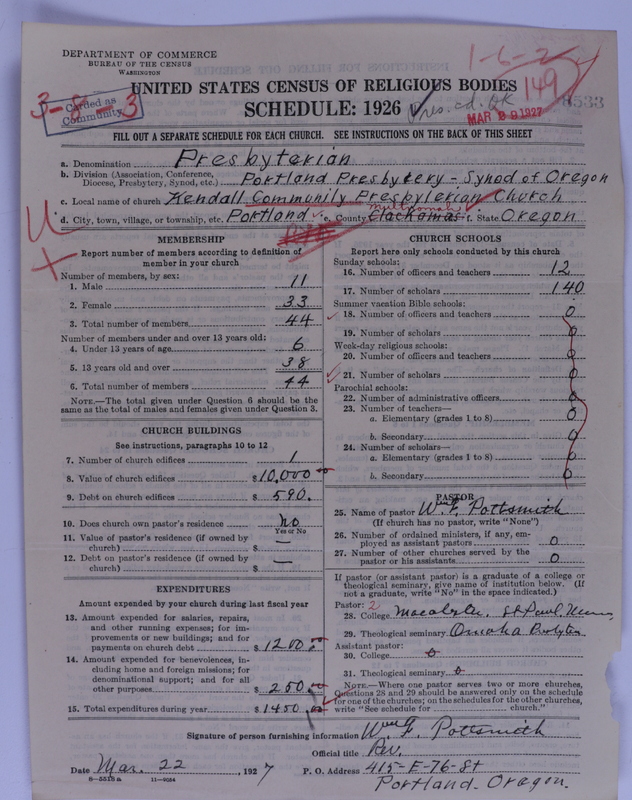 DEPARTMENT OF COMMERCE
BUREAU OF THE CENSUS
WASHINGTON
1-6-2
149
UNITED STATES CENSUS OF RELIGIOUS BODIES
3-8-3
Carded as Community
SCHEDULE: 1926
Pres. cd. OK
MAR 29 1927
8533
FILL OUT A SEPARATE SCHEDULE FOR EACH CHURCH. SEE INSTRUCTIONS ON THE BACK OF THIS SHEET
a. Denomination Presbyterian
b. Division (Association, Conference, Diocese, Presbytery, Synod, etc.) Portland Presbytery - Synod of Oregon
c. Local name of church Kendall Community Presbyterian Church
d. City, town, village, or township, etc. Portland e. County Clackamas f. State Oregon
MEMBERSHIP
Report number of members according to definition of member in your church
Number of members, by sex:
1. Male 11
2. Female 33
3. Total number of members 44
Number of members under and over 13 years old:
4. Under 13 years of age 6
5. 13 years old and over 38
6. Total number of members 44
NOTE.—The total given under Question 6 should be the same as the total of males and females given under Question 3.
CHURCH BUILDINGS
See instructions, paragraphs 10 to 12
7. Number of church edifices 1
8. Value of church edifices $10,000
9. Debt on church edifices $590.
10. Does church own pastor's residence no
Yes or No
11. Value of pastor's residence (if owned by church) $ —
12. Debt on pastor's residence (if owned by church) $ —
EXPENDITURES
Amount expended by your church during last fiscal year
13. Amount expended for salaries, repairs, and other running expenses; for improvements or new buildings; and for payments on church debt $1200
14. Amount expended for benevolences, including home and foreign missions; for denominational support; and for all other purposes $250
15. Total expenditures during year $1450
CHURCH SCHOOLS
Report here only schools conducted by this church
Sunday schools:
16. Number of officers and teachers 12
17. Number of scholars 140
Summer vacation Bible schools:
18. Number of officers and teachers 0
19. Number of scholars 0
Week-day religious schools:
20. Number of officers and teachers 0
21. Number of scholars 0
Parochial schools:
22. Number of administrative officers 0
23. Number of teachers—
a. Elementary (grades 1 to 8) 0
b. Secondary 0
24. Number of scholars—
a. Elementary (grades 1 to 8) 0
b. Secondary 0
PASTOR
25. Name of pastor Wm. F. Pottsmith
(If church has no pastor, write "None")
26. Number of ordained ministers, if any, employed as assistant pastors 0
27. Number of other churches served by the pastor or his assistants 0
If pastor (or assistant pastor) is a graduate of a college or theological seminary, give name of institution below. (If not a graduate, write "No" in the space indicated.)
Pastor: 2
28. College Macalester, St Paul, Minn
29. Theological seminary Omaha
Assistant pastor:
30. College 0
31. Theological seminary 0
NOTE.—Where one pastor serves two or more churches, Questions 28 and 29 should be answered only on the schedule for one of the churches; on the schedules for the other churches, write "See schedule for church."
Signature of person furnishing information Wm F. Pottsmith
Official title Rev.
Date Mar. 22, 1927
P. O. Address 415-E-76-St
Portland Oregon.
8-5518a 11-9084